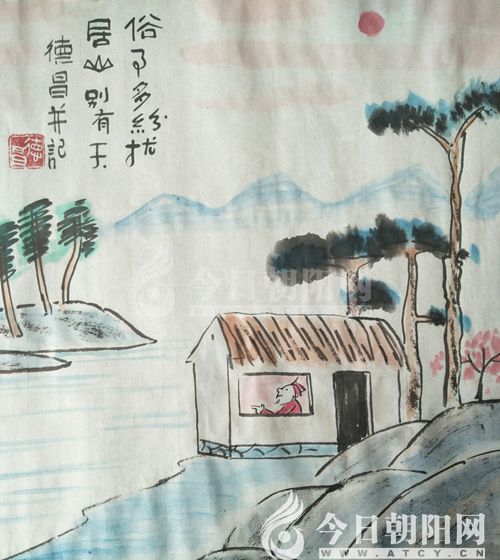 俗事多紛扰
居山别有天
德昌并記
德昌
今日朝阳网
今日朝阳网
WWW.ATCY.CN